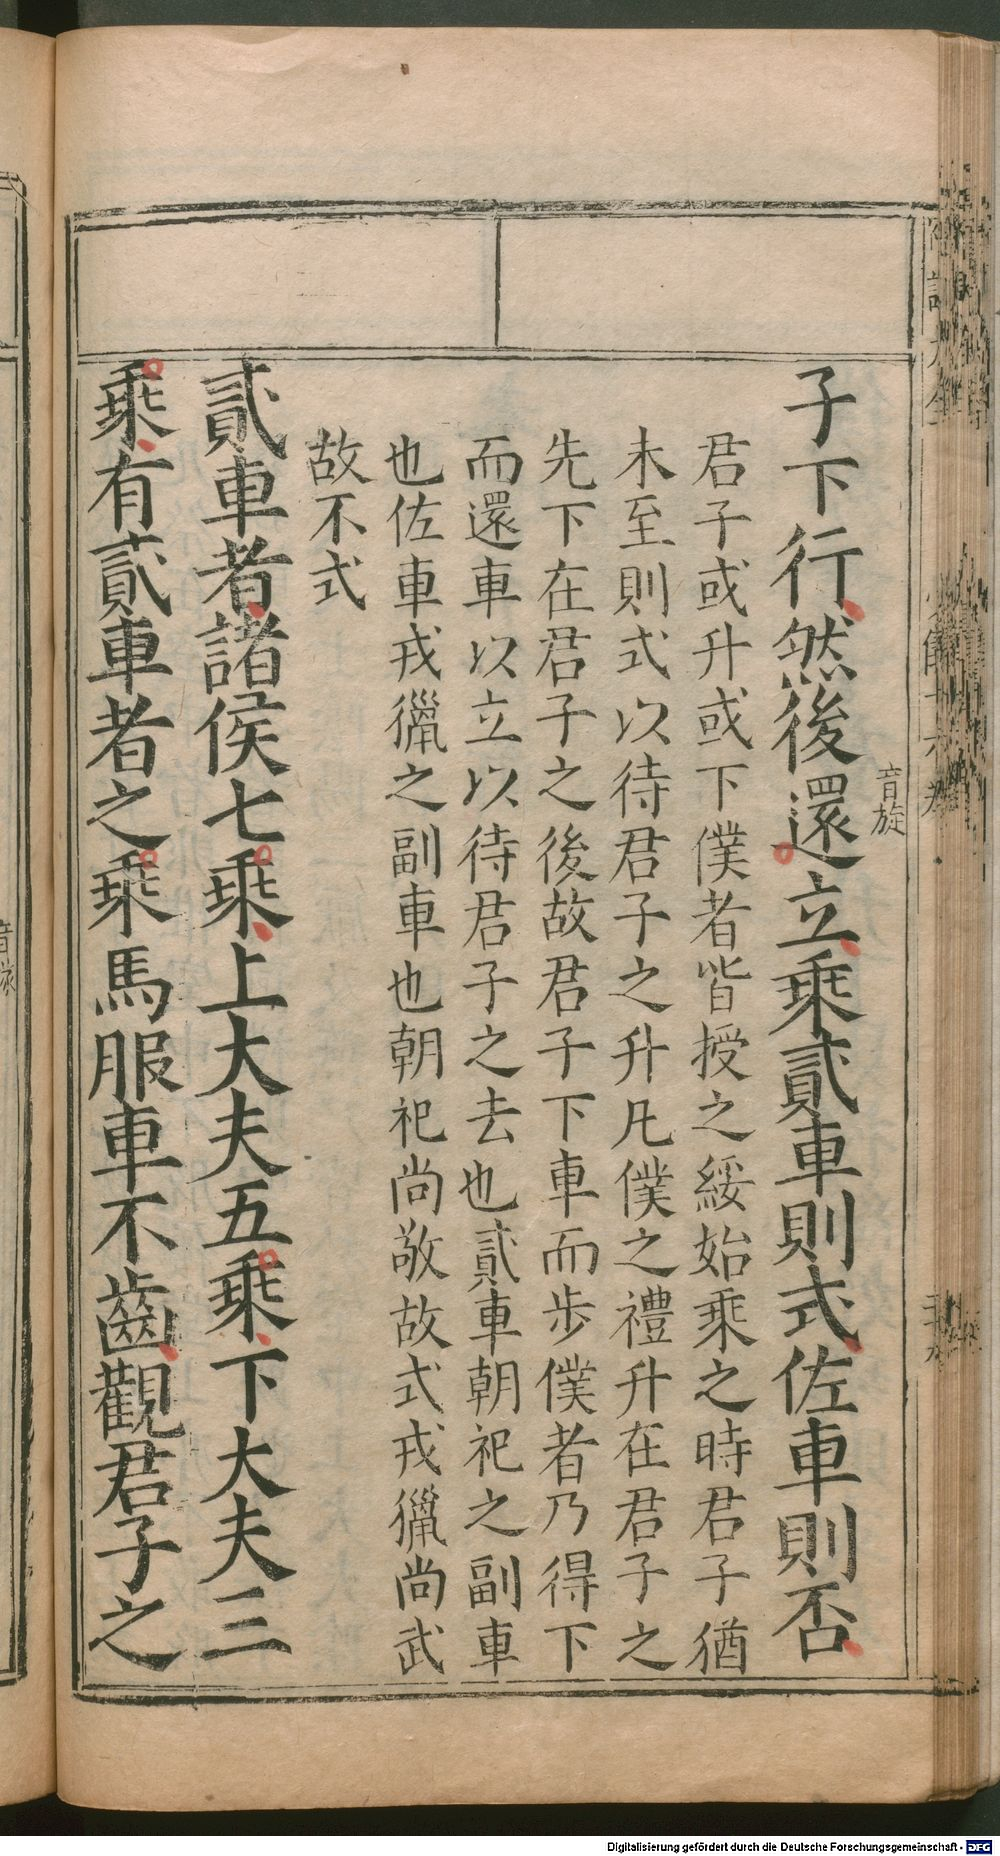 子下行然後還立乘貳車則式佐車則否
音旋
君子或升或下僕者皆授之綏始乘之時君子猶
未至則式以待君子之升凡僕之禮升在君子之
先下在君子之後故君子下車而步僕者乃得下
而還車以立以待君子之去也貳車朝祀之副車
也佐車戎獵之副車也朝祀尚敬故式戎獵尚武
故不式
貳車者諸侯七乘上大夫五乘下大夫三
乘有貳車者之乘馬服車不齒觀君子之
Digitalisierung gefördert durch die Deutsche Forschungsgemeinschaft - DFG